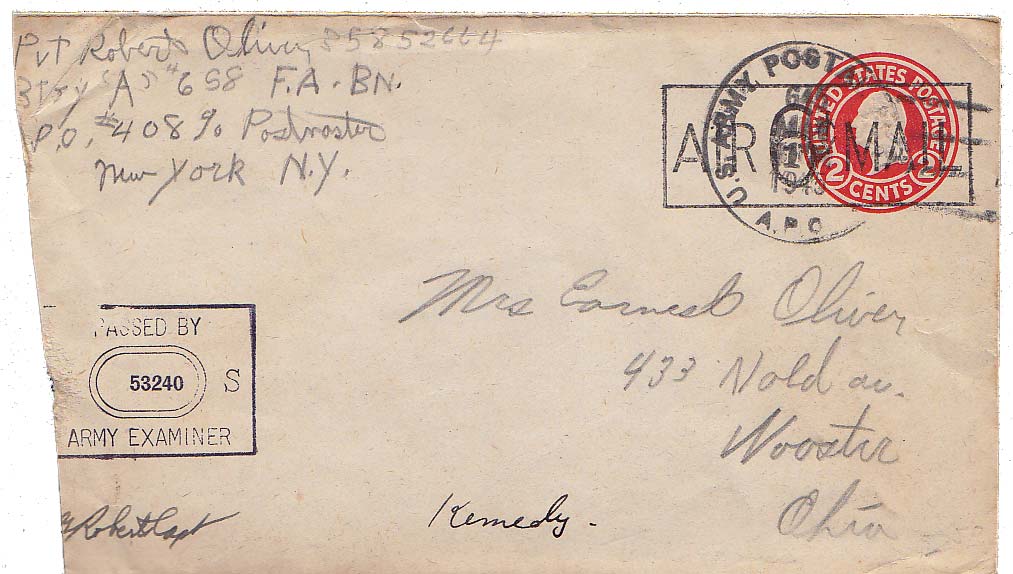 Pvt Robert Oliver 35852664
Btry "A" 658 F.A. BN.
P.O. #408 % Postmaster
New York N.Y.
U.S. ARMY POSTAL
1945
A.P.O.
AIR MAIL
UNITED STATES POSTAGE
2 CENTS 2
Mrs Earnest Oliver
433 Nold av.
Wooster
Ohio
PASSED BY
53240 S
ARMY EXAMINER
Kennedy.